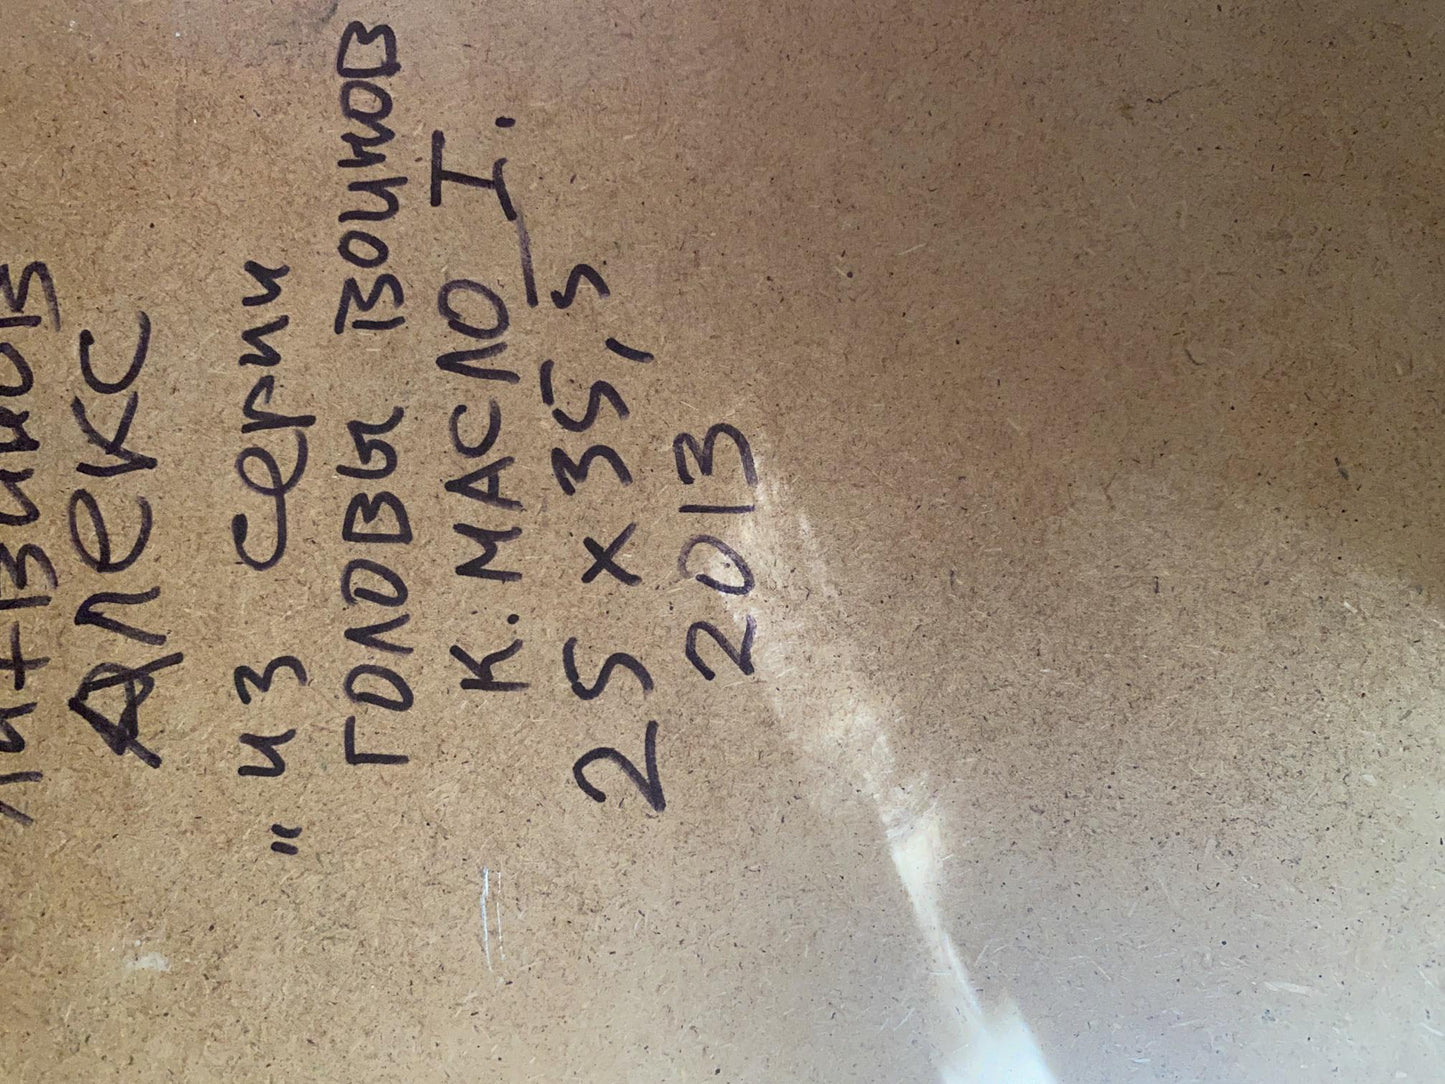 Алекс
"из серии
головы воинов
К. МАСЛО I.
25 х 35,5
2013